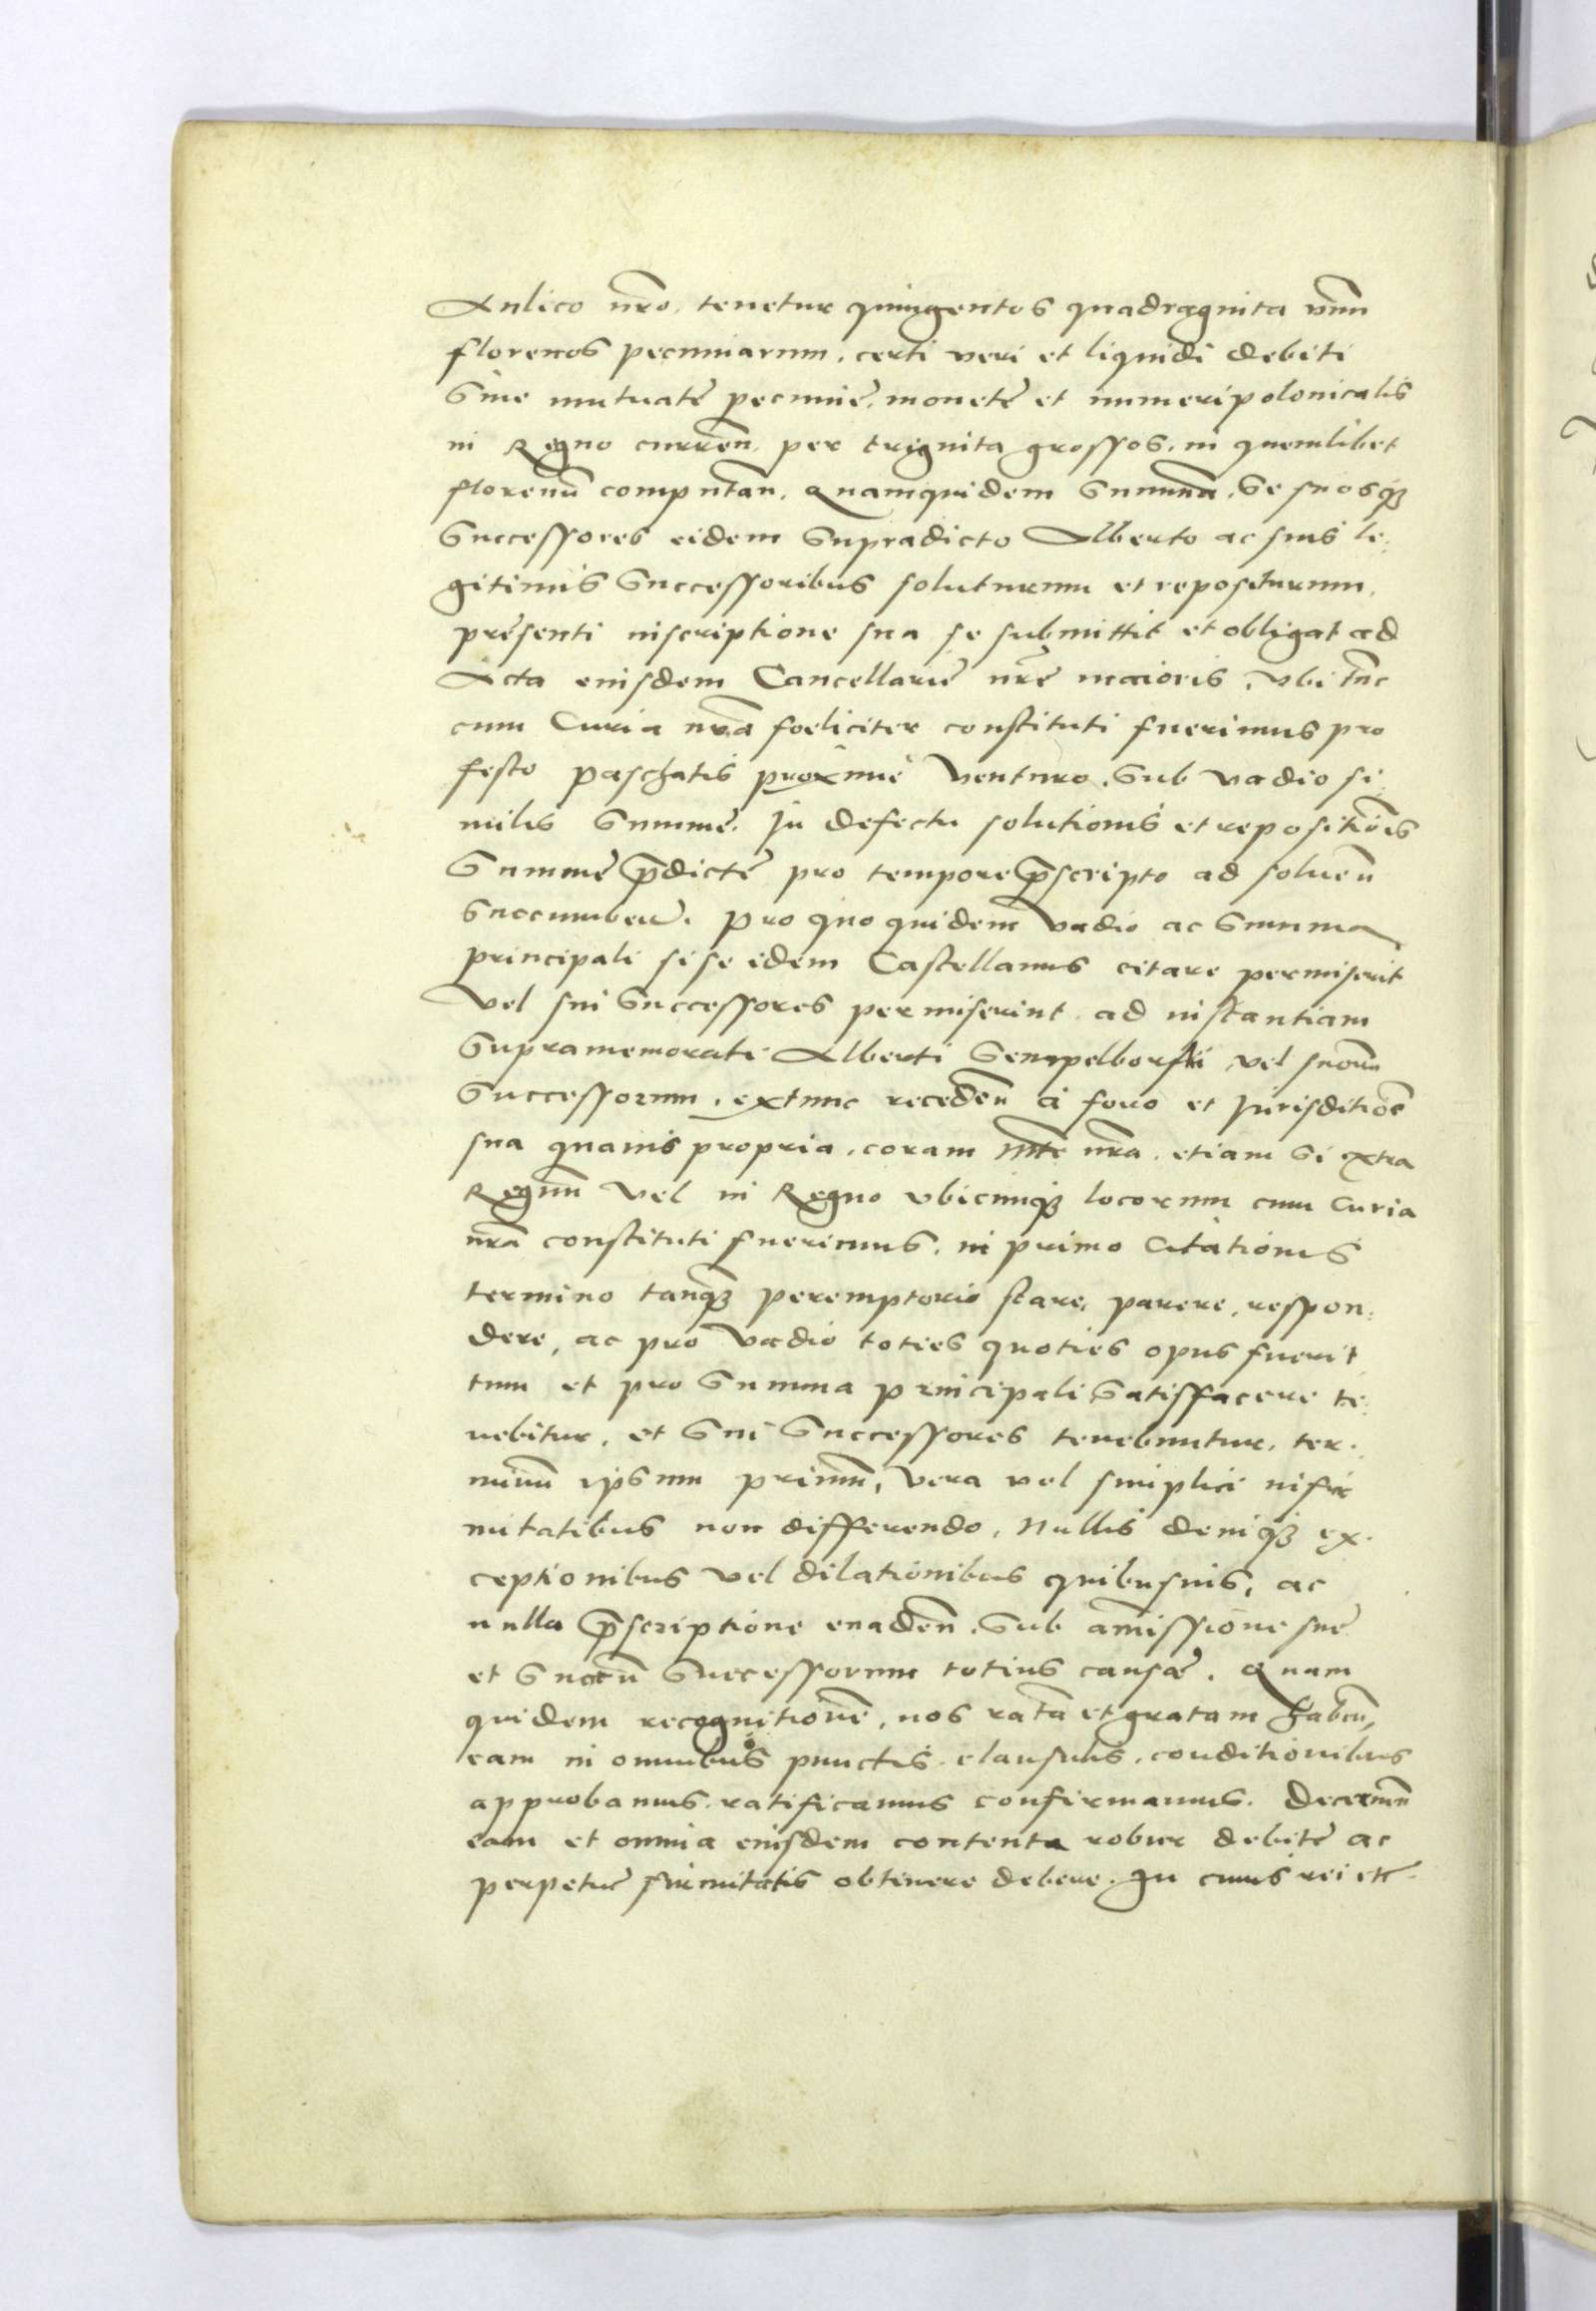 Aulico nro. tenetur quingentos quadraginta vnum
florenos pecuniarum. certi veri et liquidi debiti
siue mutuatę pecunię. monetę et numeri polonicalis
in Regno curren̄. per triginta grossos. in quemlibet
florenū computan̄. Quamquidem summā. se suosq́ꝫ
Successores eidem supradicto Alberto ac suis le:
gitimis successoribus soluturum et repositurum.
pręsenti inscriptione sua se submittit et obligat ad
Acta eiusdem Cancellarię nrę maioris, vbi tūc
cum Curia nrā foeliciter constituti fuerimus pro
festo paschatis proximè venturo. sub vadio si:
milis summę. In defectu solutionis et repositiōis
Summę p̄dictę pro tempore p̄scripto ad soluen̄
succumben̄. Pro quo quidem vadio ac summa
principali si se idem Castellanus citare permiserit
vel sui successores permiserint ad instantiam
supramemorati Alberti Sempelborski vel suorū
successorum. extunc receden̄ à foro et Jurisditiōe
sua quauis propria. coram Mte nrā. etiam si extra
Regnū vel in Regno vbicunqꝫ locorum cum Curia
nrā constituti fuerimus. in primo Citationis
termino tanqꝫ peremptorio stare, parere, respon:
dere, ac pro vadio toties quoties opus fuerit
tum et pro summa principali satisfacere te:
nebitur. et sui successores tenebuntur. ter.
minū ipsum primū, vera vel simplici infir
mitatibus non differendo, Nullis deniqꝫ ex.
ceptionibus vel dilationibus quibusuis, ac
nulla p̄scriptione euaden̄. sub amissione suę
et suorū successorum totius causæ. Quam
quidem recognitionē, nos ratā et gratam haben̄,
eam in omnibus punctis clausulis. conditionibus
approbamus. ratificamus confirmamus. Decernen̄
eam et omnia eiusdem contenta robur debitę ac
perpetuę firmitatis obtinere debere. In cuius rei etc.